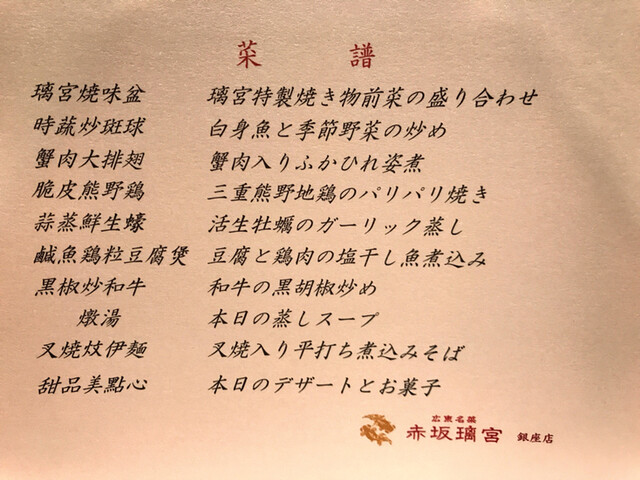 菜 譜
璃宮焼味盆 璃宮特製焼き物前菜の盛り合わせ
時蔬炒斑球 白身魚と季節野菜の炒め
蟹肉大排翅 蟹肉入りふかひれ姿煮
脆皮熊野鶏 三重熊野地鶏のパリパリ焼き
蒜蒸鮮生蠔 活生牡蠣のガーリック蒸し
鹹魚鶏粒豆腐煲 豆腐と鶏肉の塩干し魚煮込み
黒椒炒和牛 和牛の黒胡椒炒め
燉湯 本日の蒸しスープ
叉焼炆伊麺 叉焼入り平打ち煮込みそば
甜品美點心 本日のデザートとお菓子
広東名菜
赤坂璃宮 銀座店